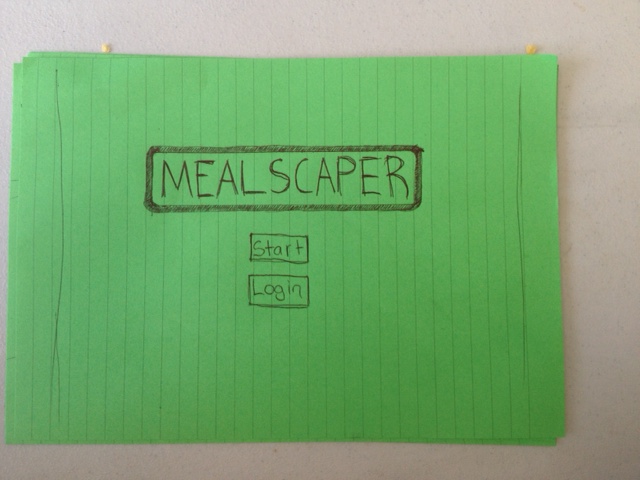 MEALSCAPER
Start
Login